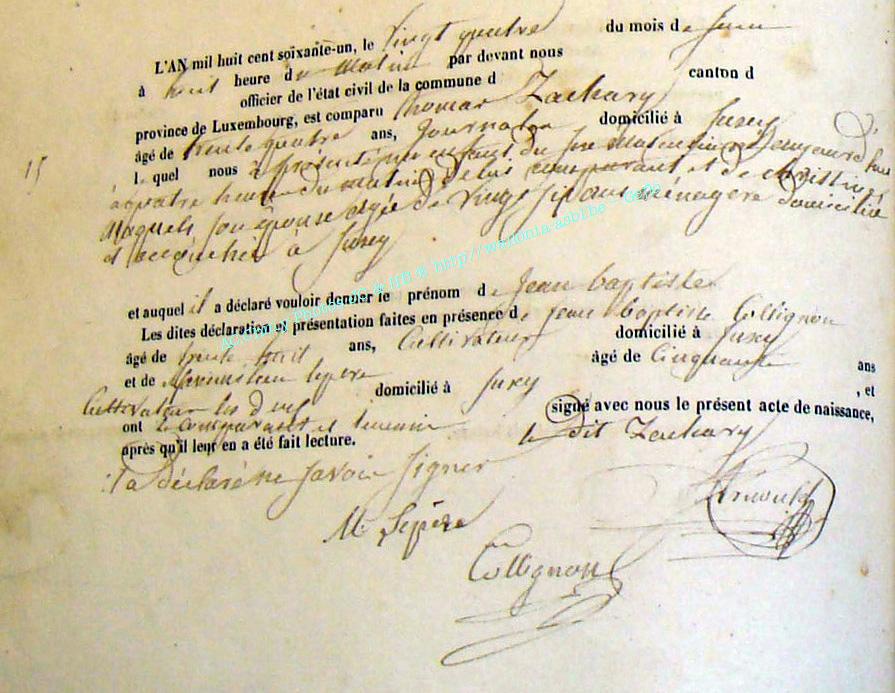 L'AN mil huit cent soixante-un, le vingt quatre du mois de juin
à huit heure du matin par devant nous
officier de l'état civil de la commune d canton d
province de Luxembourg, est comparu thomas Zachary
âgé de trente quatre ans, journalier domicilié à Juzery
15
le quel nous a présenté un enfant du sexe masculin né aujourd'hui
à quatre heure du matin de lui comparant et de christine
son épouse agée de vingt six ans ménagère domicilié
et accouchée à Jusey
et auquel il a déclaré vouloir donner le prénom de Jean baptiste
Les dites déclaration et présentation faites en présence de jean baptiste Collignon
âgé de trente huit ans, Cultivateur domicilié à Juxy
et de lepere âgé de Cinquante ans
Cultivateur les deux domicilié à Juxy , et
ont le comparant et temoin signé avec nous le présent acte de naissance,
après qu'il leur en a été fait lecture. le dit Zachary
a déclaré ne savoir signer
M Lepère
Collignon
http://wallonia.asbl.be